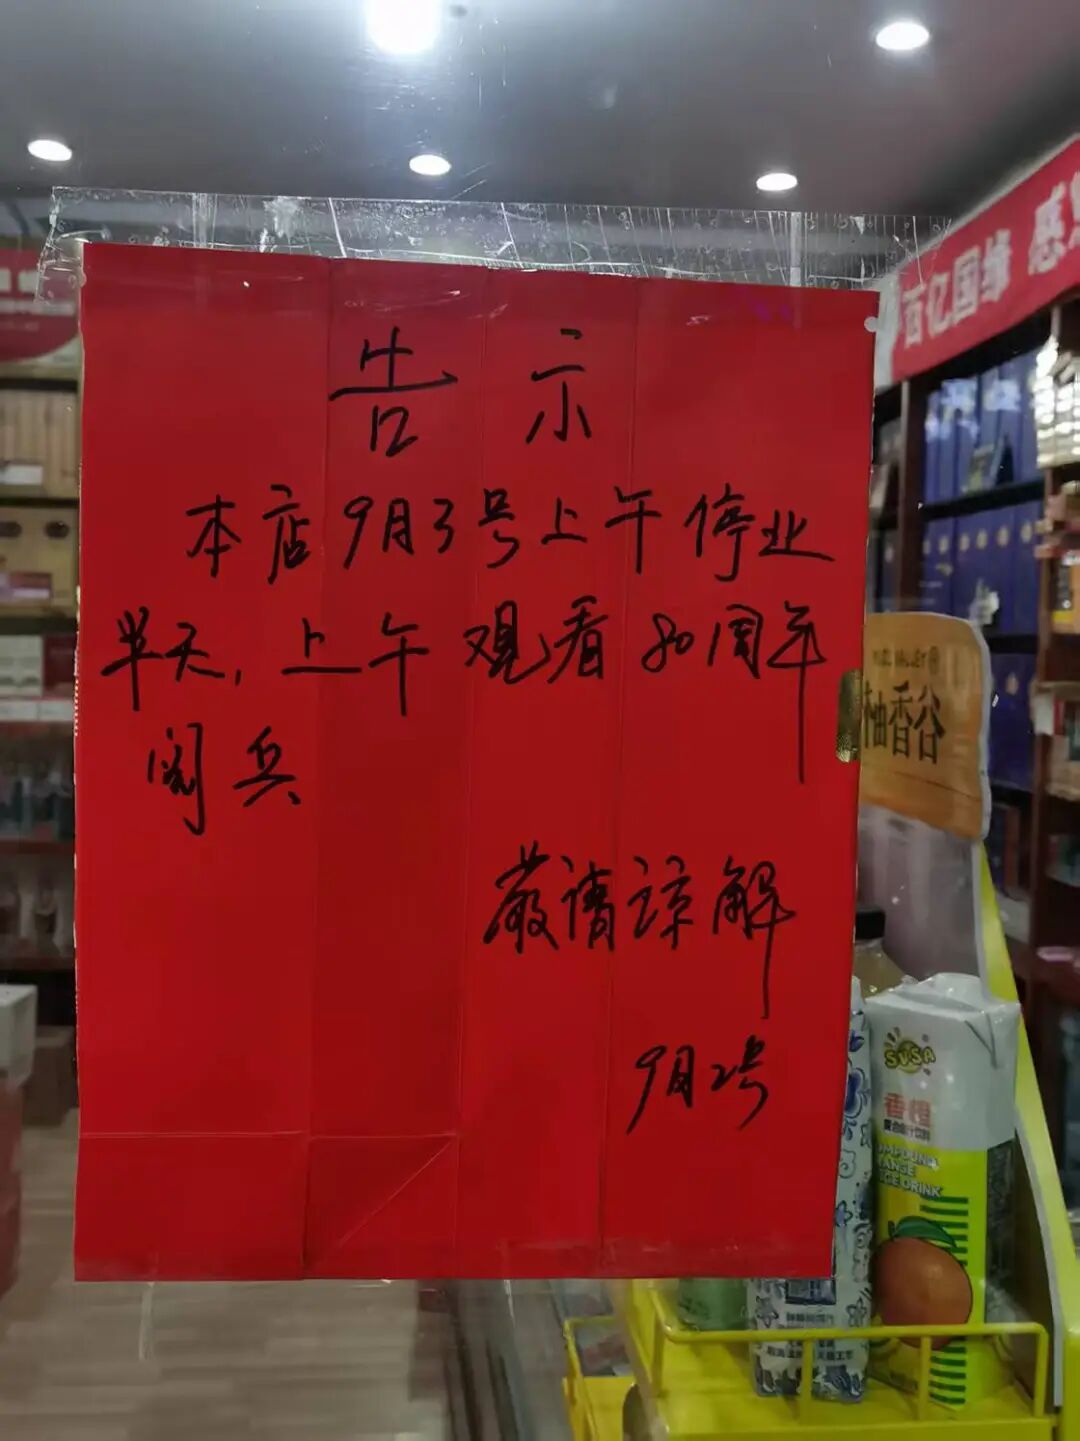 告示
本店9月3号上午停业
半天,上午观看80周年
阅兵
敬请谅解
9月2号
百亿国缘 感
柚香谷
SVSA
香橙
复合果汁饮料
COMPOUND
ORANGE
JUICE DRINK